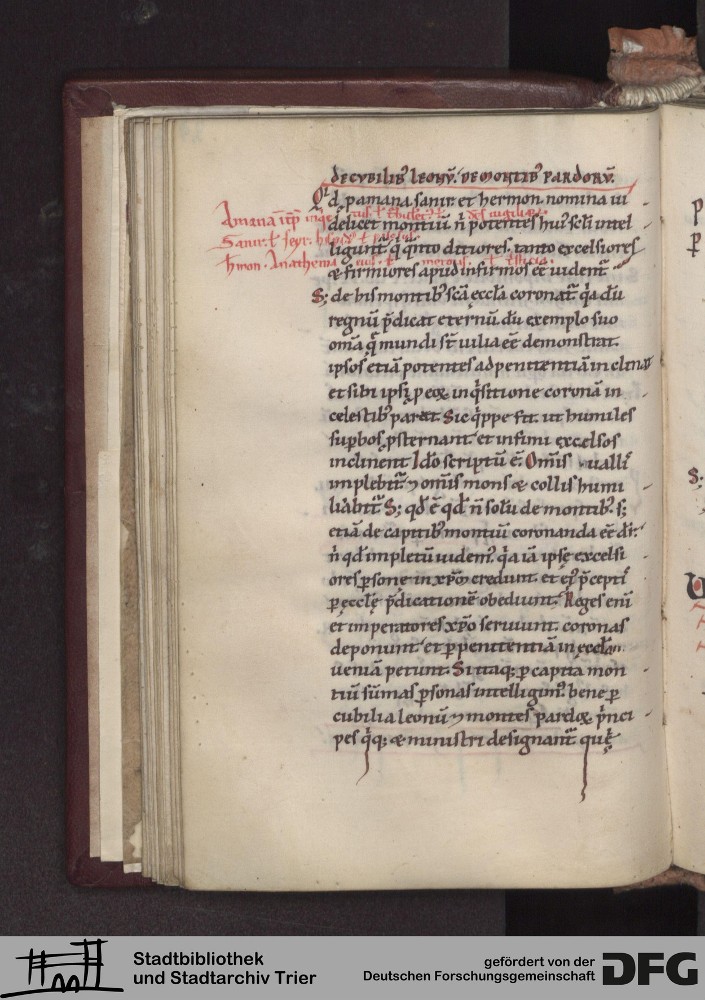 de cubilib' leonū. de montib' pardorū.
Qd̄ pamana. sanir et hermon nomina ui
delicet montiū. n̄ potentes hui' sc̄li intel
ligunt q̇ q̇nto ditiores. tanto excelsiores
& firmiores apud infirmos eē uident̄
S; de his montib' scā ecclā coronat̄ q̇a dū
regnū p̄dicat eternū. dū exemplo suo
om̄a q̇ mundi st̄ uilia eē demonstrat.
ipsos etiā potentes ad penitentiā inclinat
et sibi ipsis
in q̇sitione coronā in
celestib' parat. Sic q̇ppe fit. ut humiles
sup̱bos p̱sternant. et infimi excelsos
inclinent. Ideo scriptū ē. Om̄is uallis
implebit̄ ⁊ om̄is mons & collis humi
liabit̄. S; qd̄ ē qd̄ n̄ solū de montib'. s;
etiā de capitib' montiū coronanda eē dr̄.
n̄ qd̄ impletū uidem'. q̇a iā ipse excelsi
ores p̱sone in xp̄m credunt. et ei' p̄cepti
p̱ eccłę p̄dicationē obediunt. Reges enī
et imperatores xp̄o seruiunt. coronas
deponunt. et p̱ penitentiā in ecclā
ueniā petunt. Si itaq; p̱ capita mon
tiū sūmas p̱sonas intelligim'. bene p̱
cubilia leonū ⁊ montes pardoꝝ. p̄nci
pes q̇q; & ministri designant̄ quę
Amana
Sanir. ł
Anathema
S;
Stadtbibliothek
und Stadtarchiv Trier
gefördert von der
Deutschen Forschungsgemeinschaft
DFG